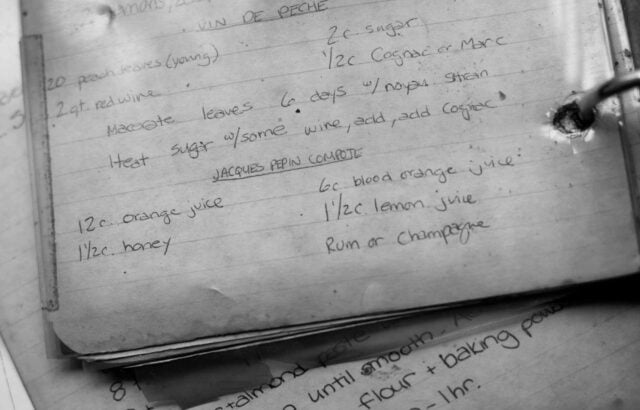 VIN DE PECHE
20 peach leaves (young) 2c. sugar
2 qt. red wine 1/2c Cognac or Marc
Macerate leaves 6 days w/noyau. Strain
Heat sugar w/some wine, add, add cognac
JACQUES PEPIN COMPOTE
12c. orange juice 6c blood orange juice
1 1/2c. honey 1 1/2c lemon juice
Rum or Champagne
until smooth.
flour + baking
1hr.